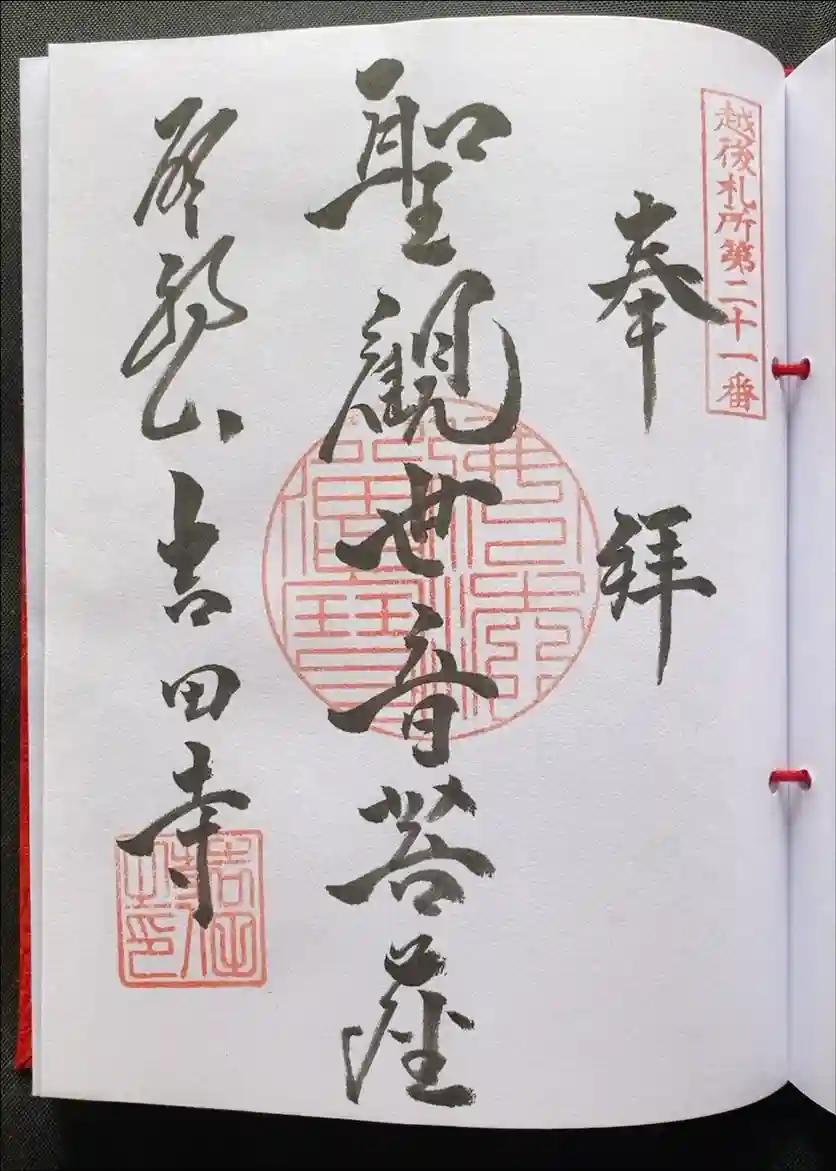 越後札所第二十一番
奉拝
聖觀世音菩薩
佛法僧寶
山吉田寺